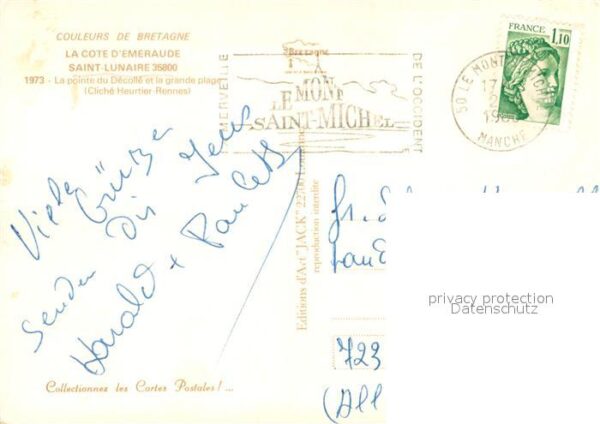 COULEURS DE BRETAGNE
LA COTE D'EMERAUDE
SAINT-LUNAIRE 35800
1973 - La pointe du Décollé et la grande plage
(Cliché Heurtier-Rennes)
MERVEILLE
BRETAGNE
LE MONT
SAINT-MICHEL
DE L'OCCIDENT
FRANCE 1,10
50 LE MONT
17
MANCHE
Viele Grüsse
senden Dir
Harald +
Editions d'Art "JACK" 22700
reproduction interdite
723
(All
privacy protection
Datenschutz
Collectionnez les Cartes Postales !...